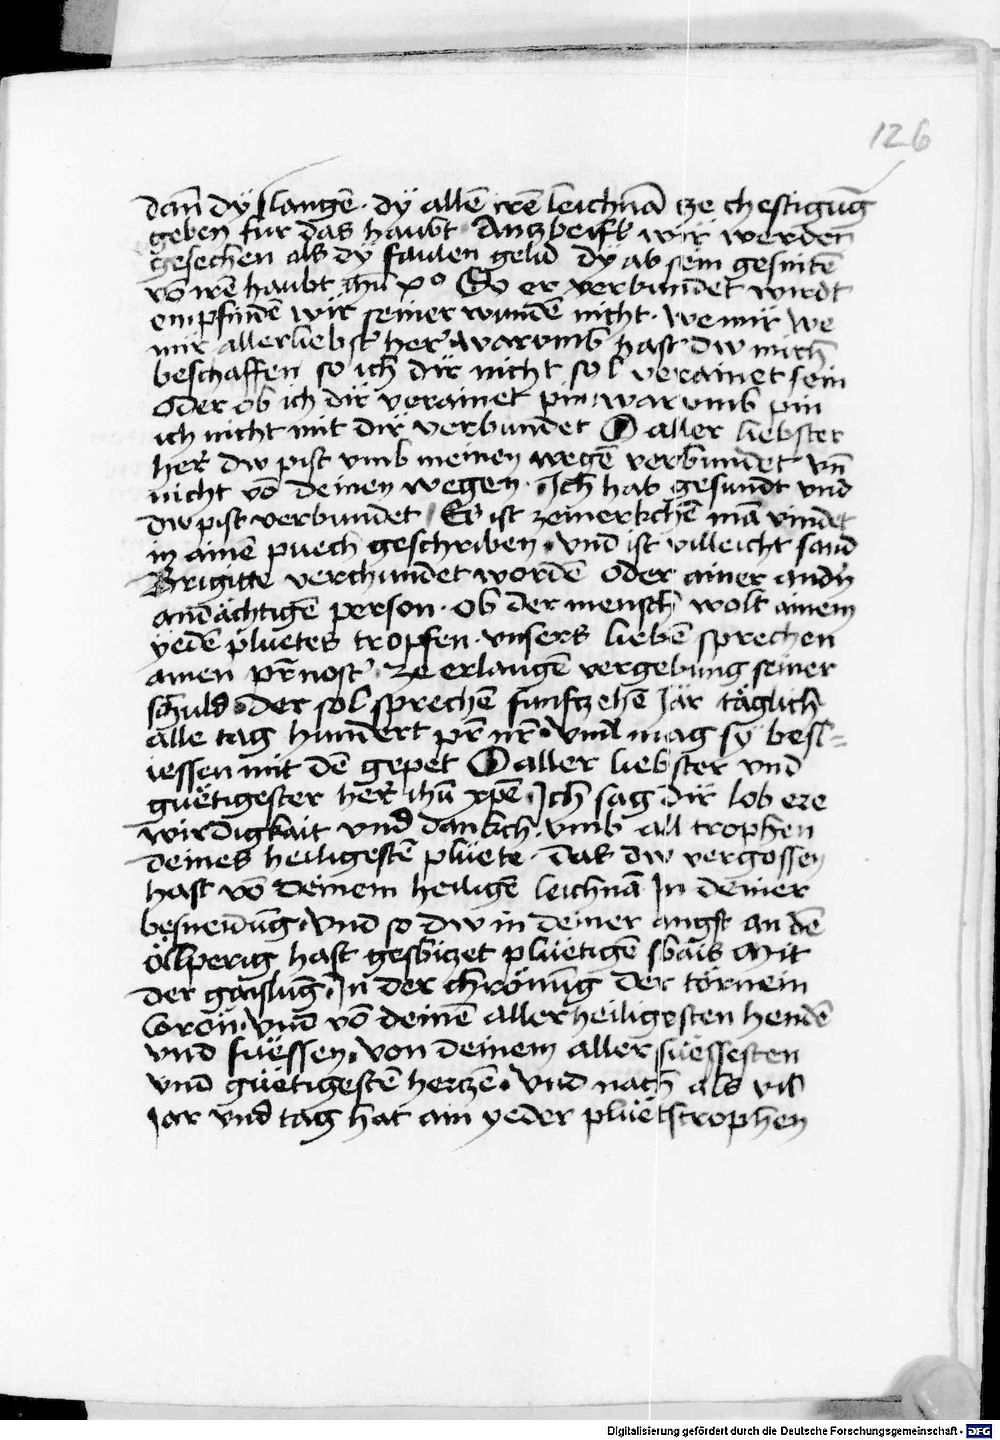 126
dan̄ dy slangē · dy allē irē leichnā cze chestigūg
geben fur das haubt · Anczbeifl wir werden
gesechen als dy faulen gelid dy ab sein gesnitē
vō irē haubt ihū xo So er verbundet wirdt
empfindē wir seiner wundē nicht · we mir we
mir allerliebst' her' warumb hast dw mich
beschaffen so ich dir nicht sol verainet sein
oder ob ich dir verainet pin · warumb pin
ich nicht mit dir verbundet O aller liebster
her' dw pist vmb meinen wegē verbundet vn̄
nicht vō deinen wegen · Ich hab gesundt vnd
dw pist verbundet / Es ist zemerkchē mā vindet
in ainē puech geschriben · vnd ist villeicht sand
Brigitte verchundet wordē oder ainer andn̄
andächtigē person · ob der mensch wolt ainem
yedē pluetes tropfen · vnsers liebē sprechen
ainen pr̄ nost' · ze erlangē vergebung seiner
schuld · der sol sprechē funfczehē Jar täglich
alle tag hundert pr̄ nr̄ · vnd mag sy besl=
iessen mit dē gepet O aller liebster vnd
guëtigester her' ihū xpē · Ich sag dir lob ere
wirdigkait vnd dankch · vmb all trophen
deines heiligestē pluete · das dw vergossen
hast vō deinem heiligē leichnā In deiner
besneidūg · vnd so dw in deiner angst an dē
ölperig hast gesbiczet pluëtigē sbais Mit
der gaislūg · In der chrönūg der törnein
Corōn · vnd vō deinē allerheiligesten hendē
vnd fuëssen · von deinem aller suëssesten
vnd guëtigestē herczē · vnd nach als vil
Jar vnd tag hat ain yeder pluëtstrophen
Digitalisierung gefördert durch die Deutsche Forschungsgemeinschaft - DFG